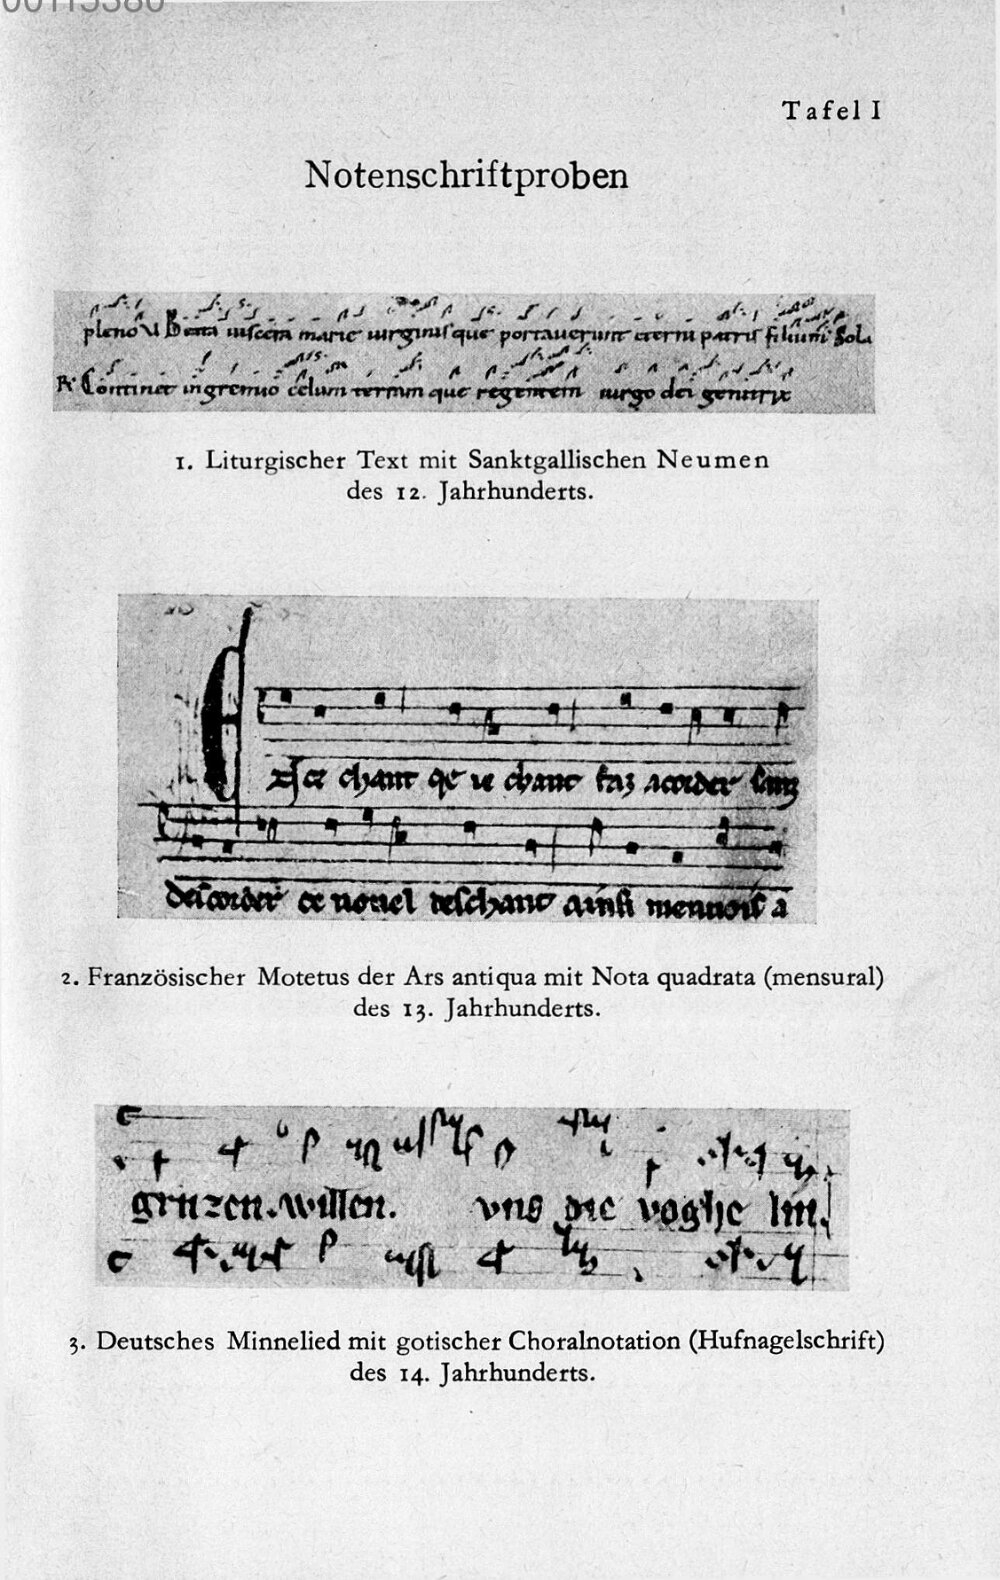 00115380
Tafel I
Notenschriftproben
pleno V Beata viscera marie virginis que portaverunt eterni patris filium Sola
R Continet in gremio celum terram que regentem virgo dei genitrix
1. Liturgischer Text mit Sanktgallischen Neumen
des 12. Jahrhunderts.
ce chant qe ie chant faz acorder sanz
descorder ce nouel deschant ainsi mennois a
2. Französischer Motetus der Ars antiqua mit Nota quadrata (mensural)
des 13. Jahrhunderts.
willen. vns die voghe lin
3. Deutsches Minnelied mit gotischer Choralnotation (Hufnagelschrift)
des 14. Jahrhunderts.